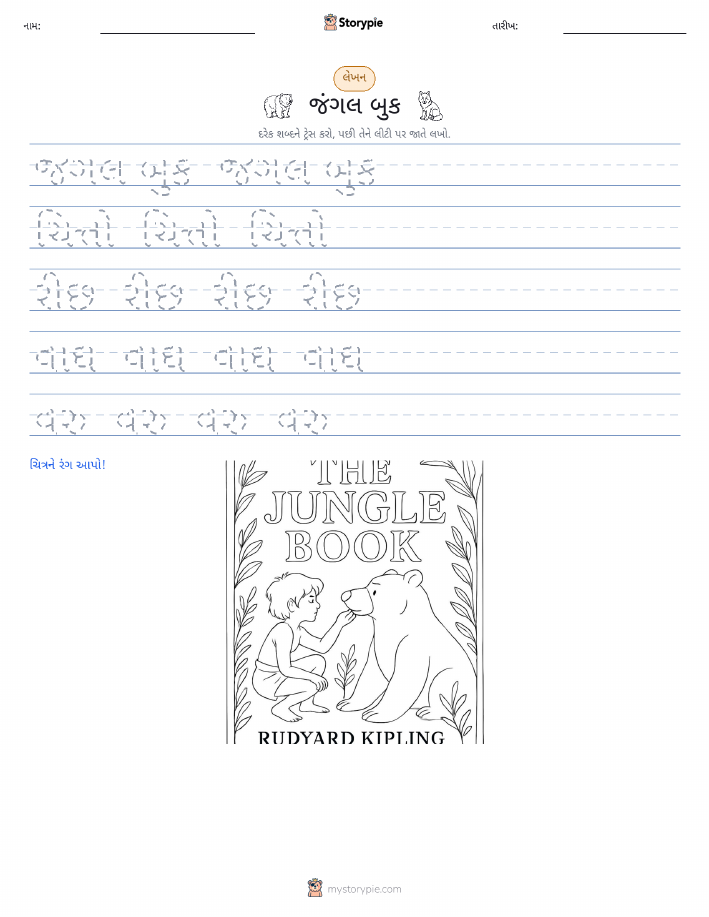 નામ:
Storypie
તારીખ:
લેખન
જંગલ બુક
દરેક શબ્દને ટ્રેસ કરો, પછી તેને લીટી પર જાતે લખો.
જંગલ બુક જંગલ બુક
ચિત્તો ચિત્તો ચિત્તો
રીંછ રીંછ રીંછ રીંછ
વાઘ વાઘ વાઘ વાઘ
વરુ વરુ વરુ વરુ
ચિત્રને રંગ આપો!
THE
JUNGLE
BOOK
RUDYARD KIPLING
mystorypie.com